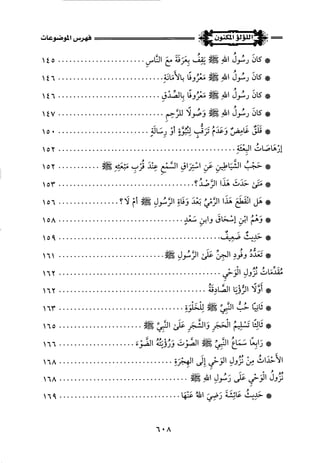 اللؤلؤ المكنون
فهرس الموضوعات
* كَانَ رَسُولُ اللهِ ﷺ يَقِفُ بِعَرَفَةَ مَعَ النَّاسِ ..... ١٤٥
* كَانَ رَسُولُ اللهِ ﷺ مَعْرُوفًا بِالأَمَانَةِ ..... ١٤٦
* كَانَ رَسُولُ اللهِ ﷺ مَعْرُوفًا بِالصِّدْقِ ..... ١٤٦
* كَانَ رَسُولُ اللهِ ﷺ وَصُولًا لِلرَّحِمِ ..... ١٤٧
* قَلَقٌ غَامِضٌ وَعَدَمُ تَرَقُّبٍ لِنُبُوَّةٍ أَوْ رِسَالَةٍ ..... ١٥٠
إِرْهَاصَاتُ البِعْثَةِ ..... ١٥٢
* حَجْبُ الشَّيَاطِينِ عَنِ اسْتِرَاقِ السَّمْعِ عِنْدَ قُرْبِ مَبْعَثِهِ ﷺ ..... ١٥٢
* مَتَى حَدَثَ هَذَا الرَّصْدُ؟ ..... ١٥٣
* هَلِ انْقَطَعَ هَذَا الرَّمْيُ بَعْدَ وَفَاةِ الرَّسُولِ ﷺ أَمْ لَا؟ ..... ١٥٦
* وَهْمُ ابْنِ إِسْحَاقَ وابنِ سَعْدٍ ..... ١٥٨
* حَدِيثٌ ضَعِيفٌ ..... ١٥٩
* تَعَدُّدُ وُفُودِ الجِنِّ عَلَى الرَّسُولِ ﷺ ..... ١٦١
مُقَدِّمَاتُ نُزُولِ الْوَحْيِ ..... ١٦٢
* أَوَّلًا الرُّؤْيَا الصَّادِقَةُ ..... ١٦٢
* ثَانِيًا حُبُّ النَّبِيِّ ﷺ لِلْخَلْوَةِ ..... ١٦٣
* ثَالِثًا تَسْلِيمُ الْحَجَرِ وَالشَّجَرِ عَلَى النَّبِيِّ ﷺ ..... ١٦٥
* رَابِعًا سَمَاعُ النَّبِيِّ ﷺ الصَّوْتَ وَرُؤْيَتُهُ الضَّوْءَ ..... ١٦٦
الأَحْدَاثُ مِنْ نُزُولِ الوَحْيِ إِلَى الهِجْرَةِ ..... ١٦٨
نُزُولُ الْوَحْيِ عَلَى رَسُولِ اللهِ ﷺ ..... ١٦٨
* حَدِيثُ عَائِشَةَ رَضِيَ اللهُ عَنْهَا ..... ١٦٩
٦٠٨